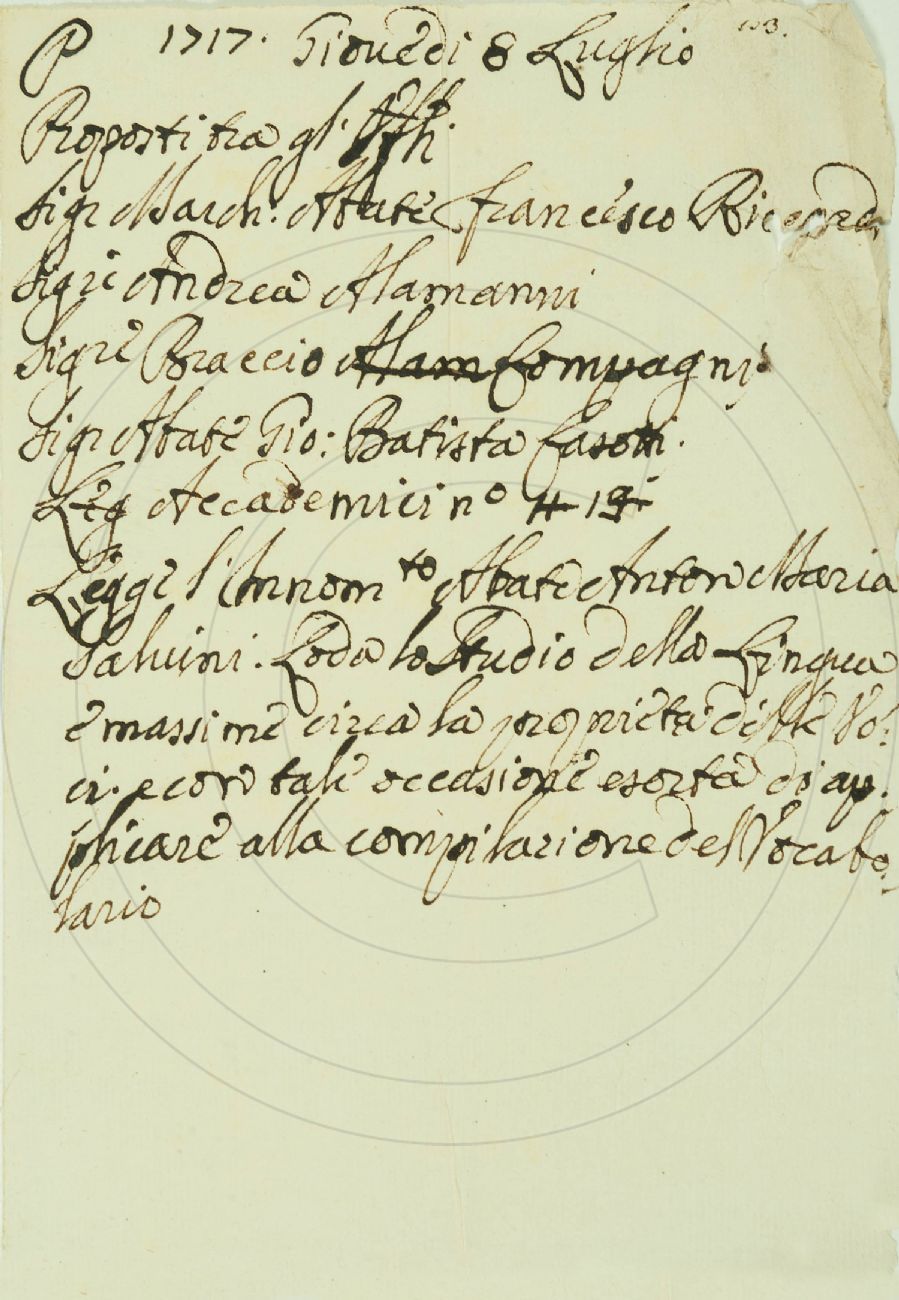 P 1717. Giovedi 8 Luglio
Proposti tra gl'
Sigr March: Abate Francesco Riccardi
Sigre Andrea Alamanni
Sigre Braccio Alam Compagni
Sigr Abate Gio: Batista Casotti.
Leg Accademici no 19
Legge l'Innomto Abate Anton Maria
Salvini. Loda lo Studio della Lingua
e massime circa la proprietà delle Vo:
ci. e con tale occasione esorta di ap:
plicare alla compilazione del Vocabo:
lario